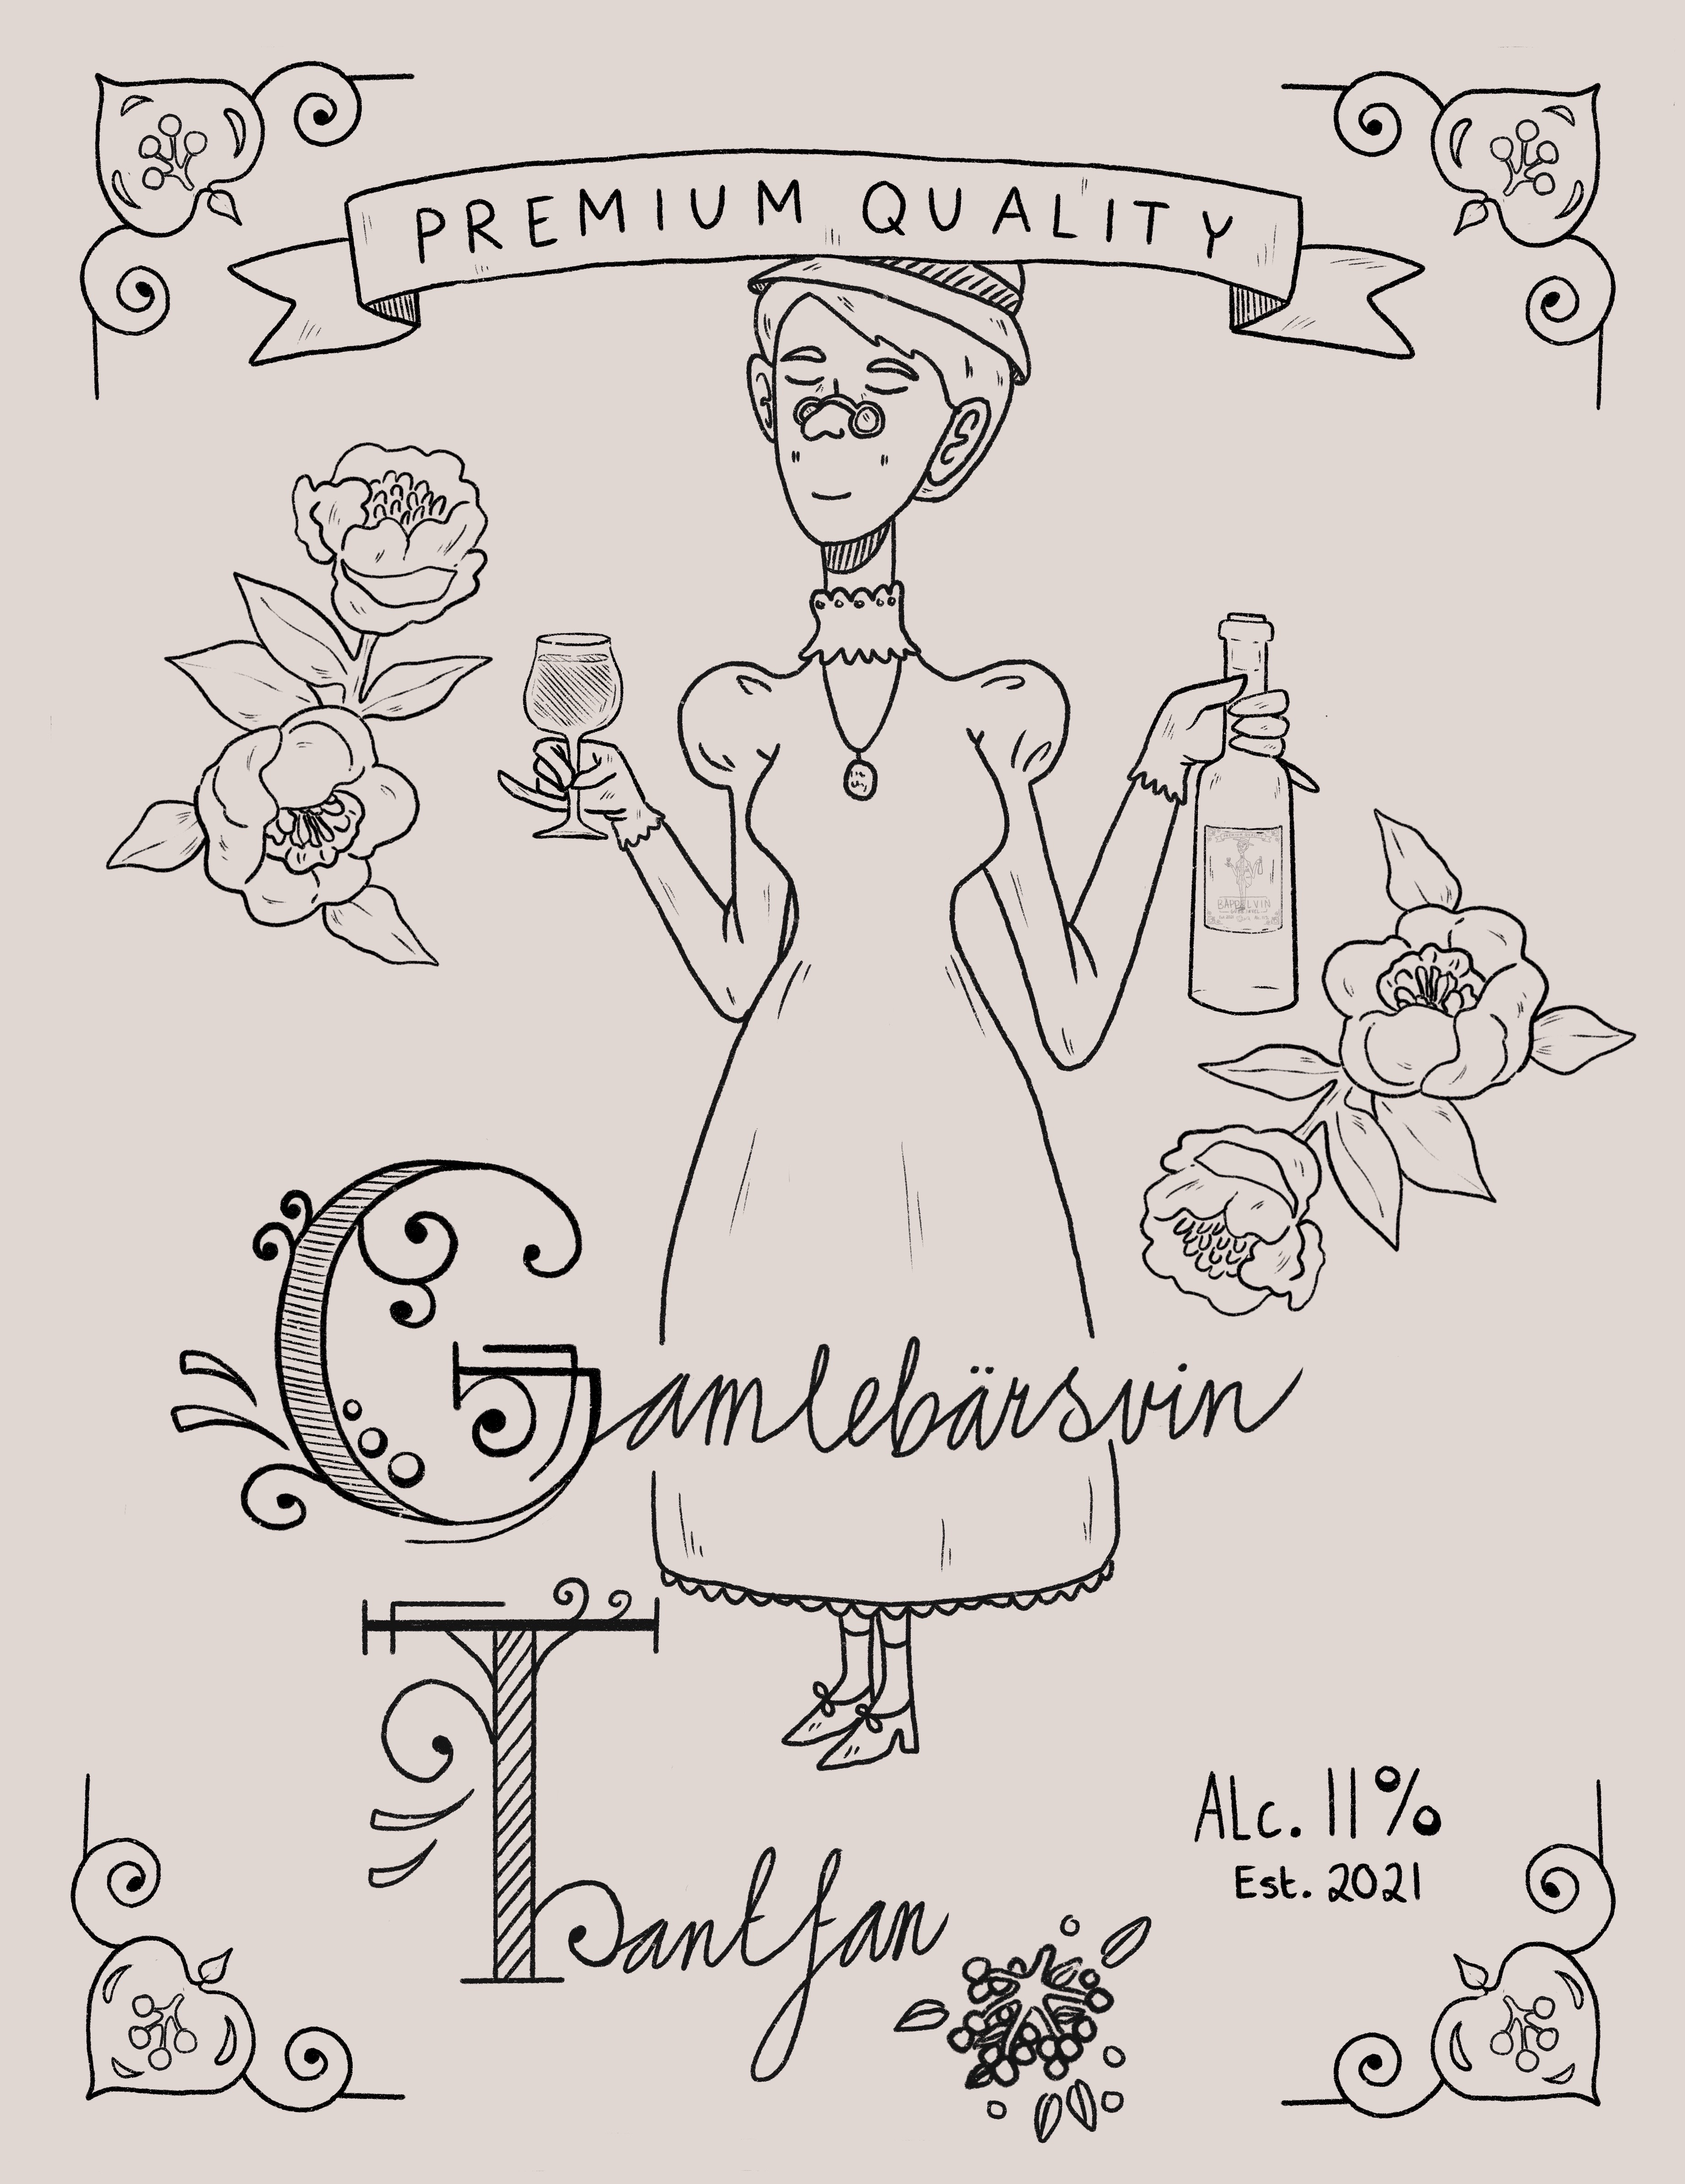 PREMIUM QUALITY
Gamlebärsvin
Tantfan
ALc. 11%
Est. 2021